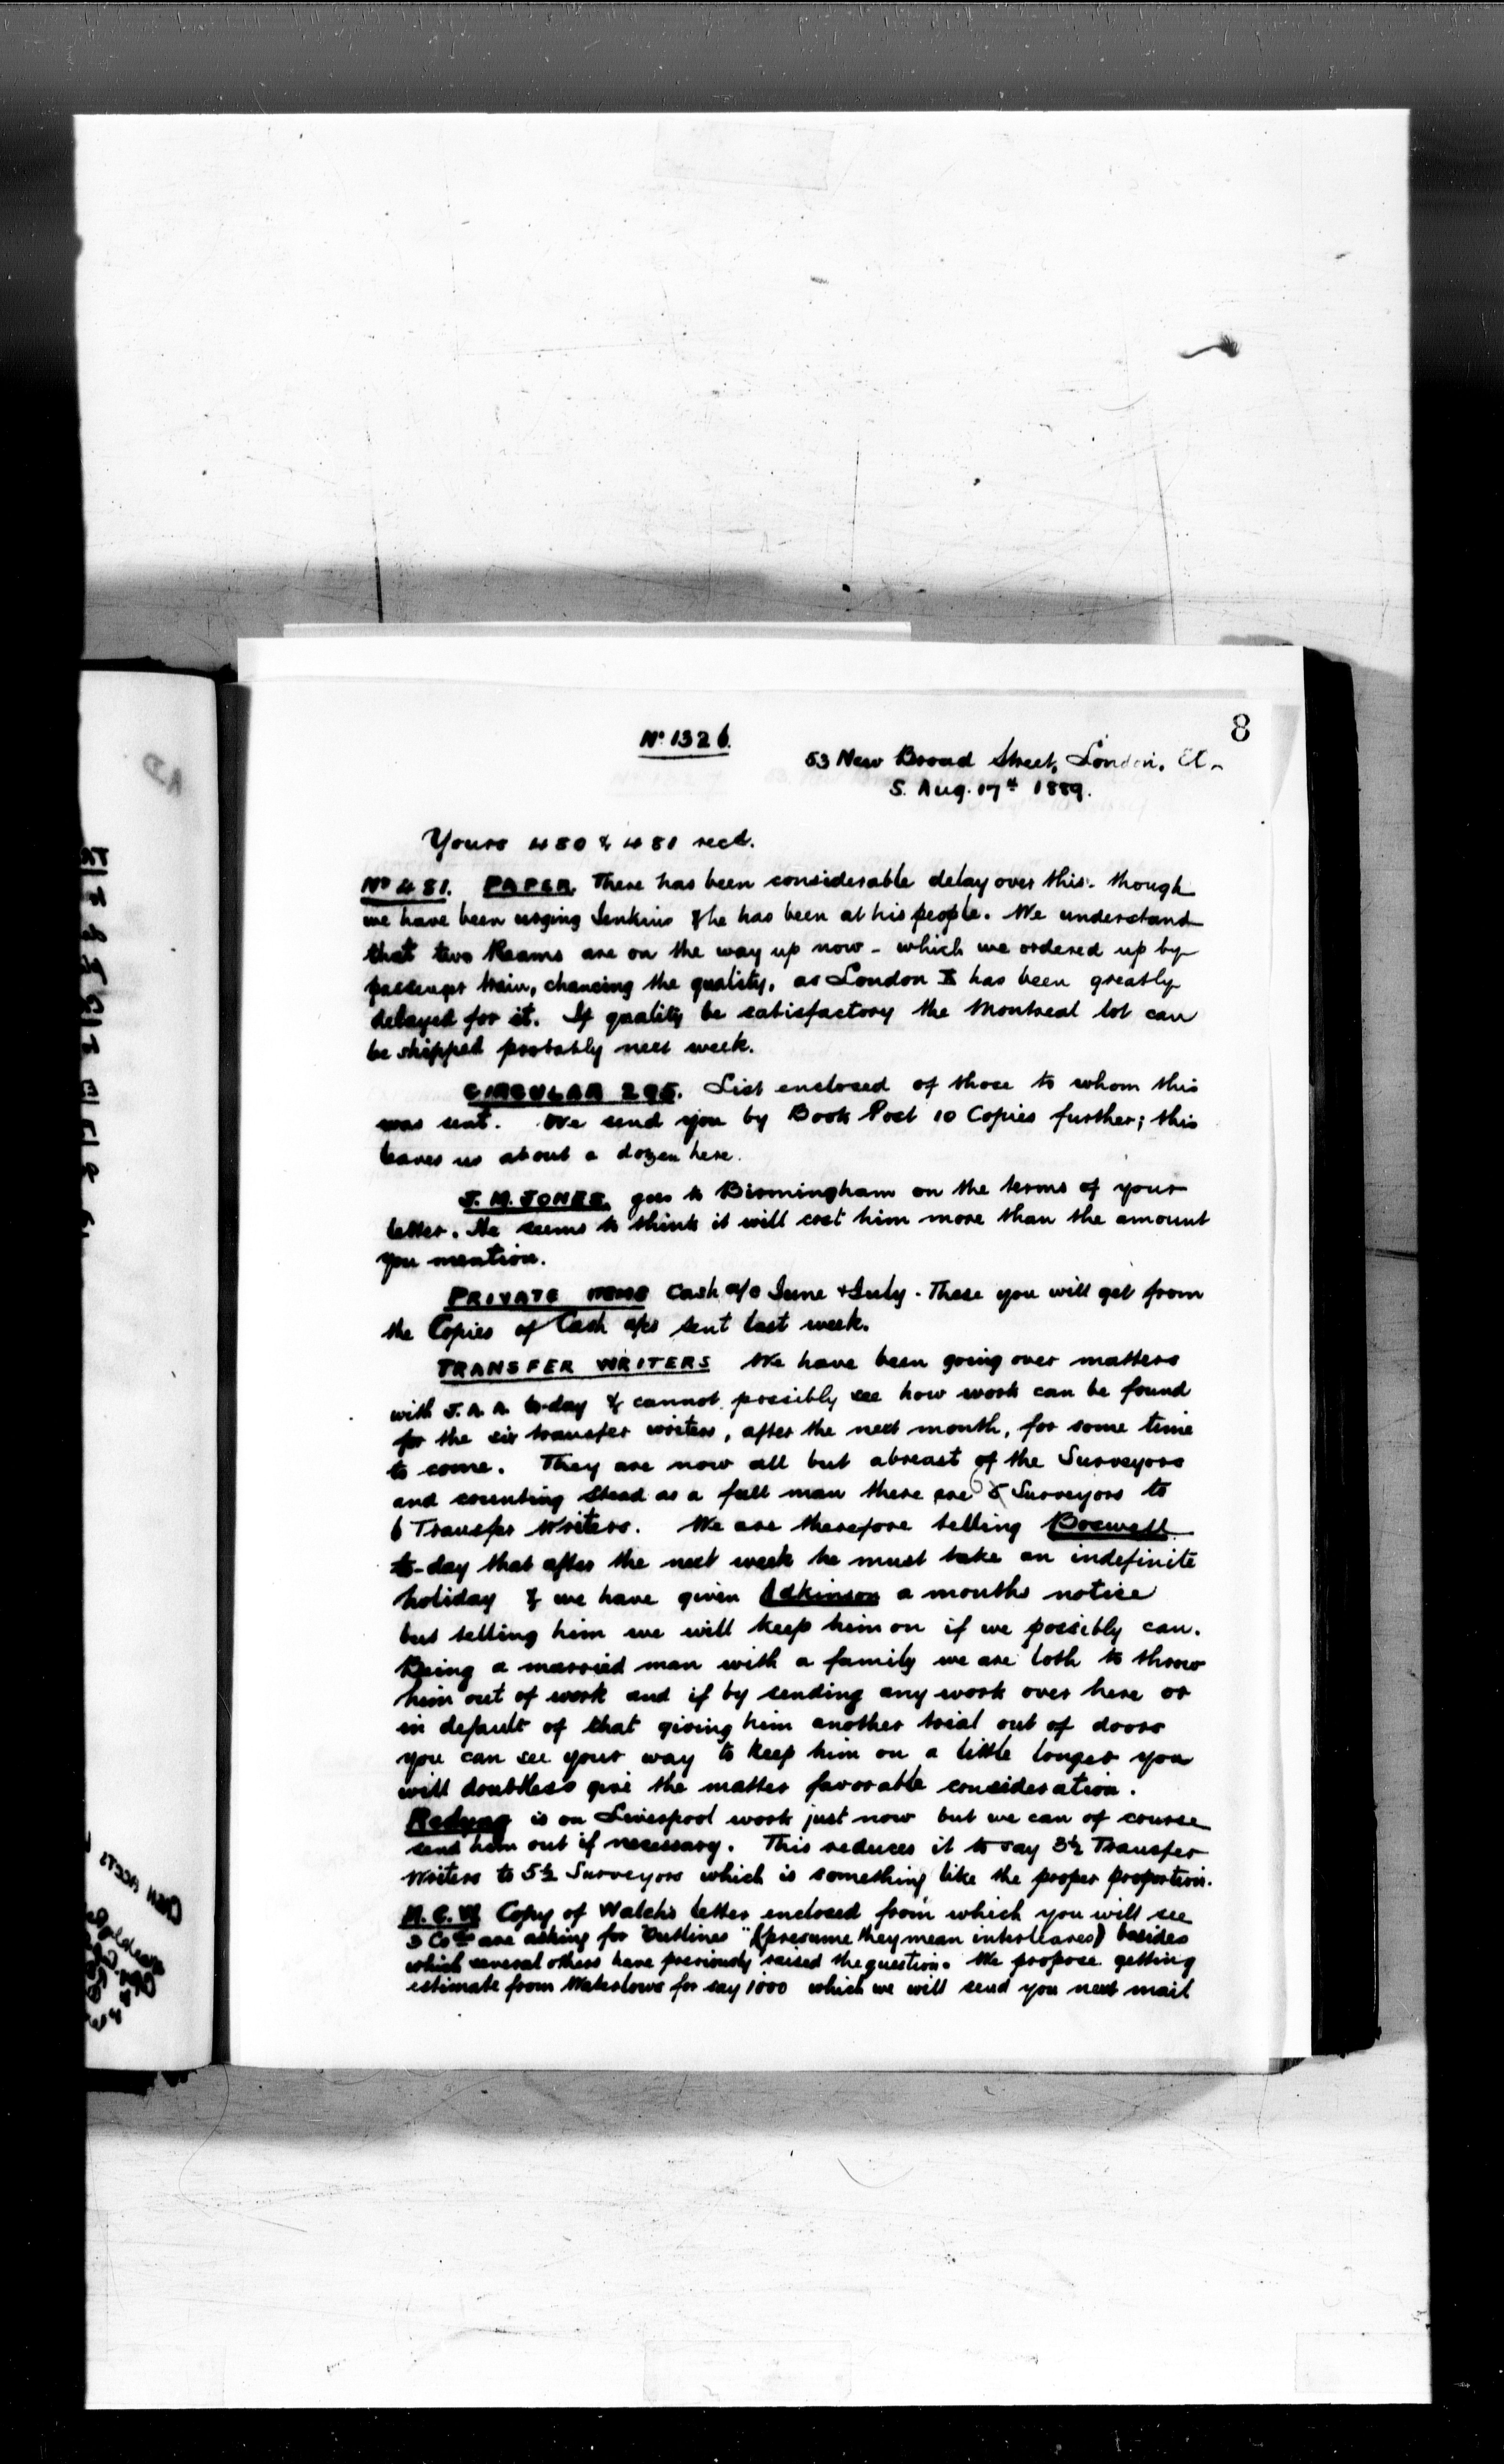 8
No. 1326.
53 New Broad Street, London. E.C.
S. Aug. 17th 1889.
Yours 480 & 481 recd.
No 481. PAPER. There has been considerable delay over this. though
we have been urging Jenkins & he has been at his people. We understand
that two Reams are on the way up now - which we ordered up by
passenger train, chancing the quality, as London X has been greatly
delayed for it. If quality be satisfactory the Montreal lot can
be shipped probably next week.
CIRCULAR 295. List enclosed of those to whom this
was sent. We send you by Book Post 10 Copies further; this
leaves us about a dozen here.
J. M. JONES. goes to Birmingham on the terms of your
letter. He seems to think it will cost him more than the amount
you mention.
PRIVATE MEMO Cash a/c June & July. These you will get from
the Copies of Cash a/cs sent last week.
TRANSFER WRITERS We have been going over matters
with J.A.A. to-day & cannot possibly see how work can be found
for the six transfer writers, after the next month, for some time
to come. They are now all but abreast of the Surveyors
and counting Stead as a full man there are 6 Surveyors to
6 Transfer Writers. We are therefore telling Boswell
to-day that after the next week he must take an indefinite
holiday & we have given Adkinson a months notice
but telling him we will keep him on if we possibly can.
Being a married man with a family we are loth to throw
him out of work and if by sending any work over here or
in default of that giving him another trial out of doors
you can see your way to keep him on a little longer you
will doubtless give the matter favorable consideration.
is on Liverpool work just now but we can of course
send him out if necessary. This reduces it to say 3½ Transfer
Writers to 5½ Surveyors which is something like the proper proportion.
Copy of Walch's letter enclosed from which you will see
3 Cos are asking for "Outlines" (presume they mean interleaves) besides
which several others have previously raised the question. We propose getting
estimate from Waterlows for say 1000 which we will send you next mail